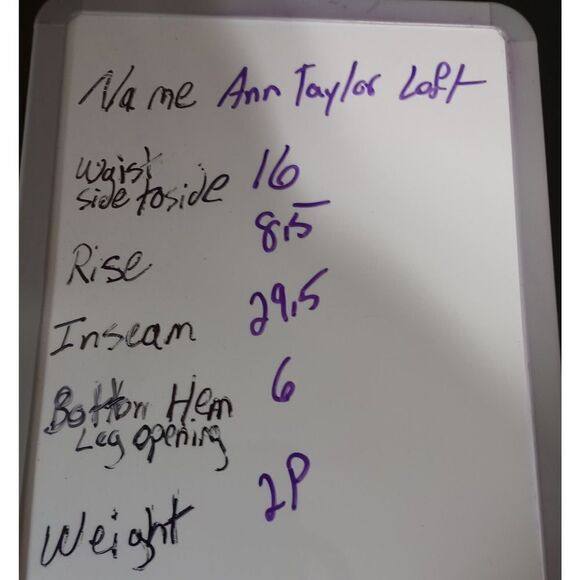 Name Ann Taylor Loft
Waist
side to side 16
Rise 8.5
Inseam 29.5
Bottom Hem 6
Leg opening
Weight 2P